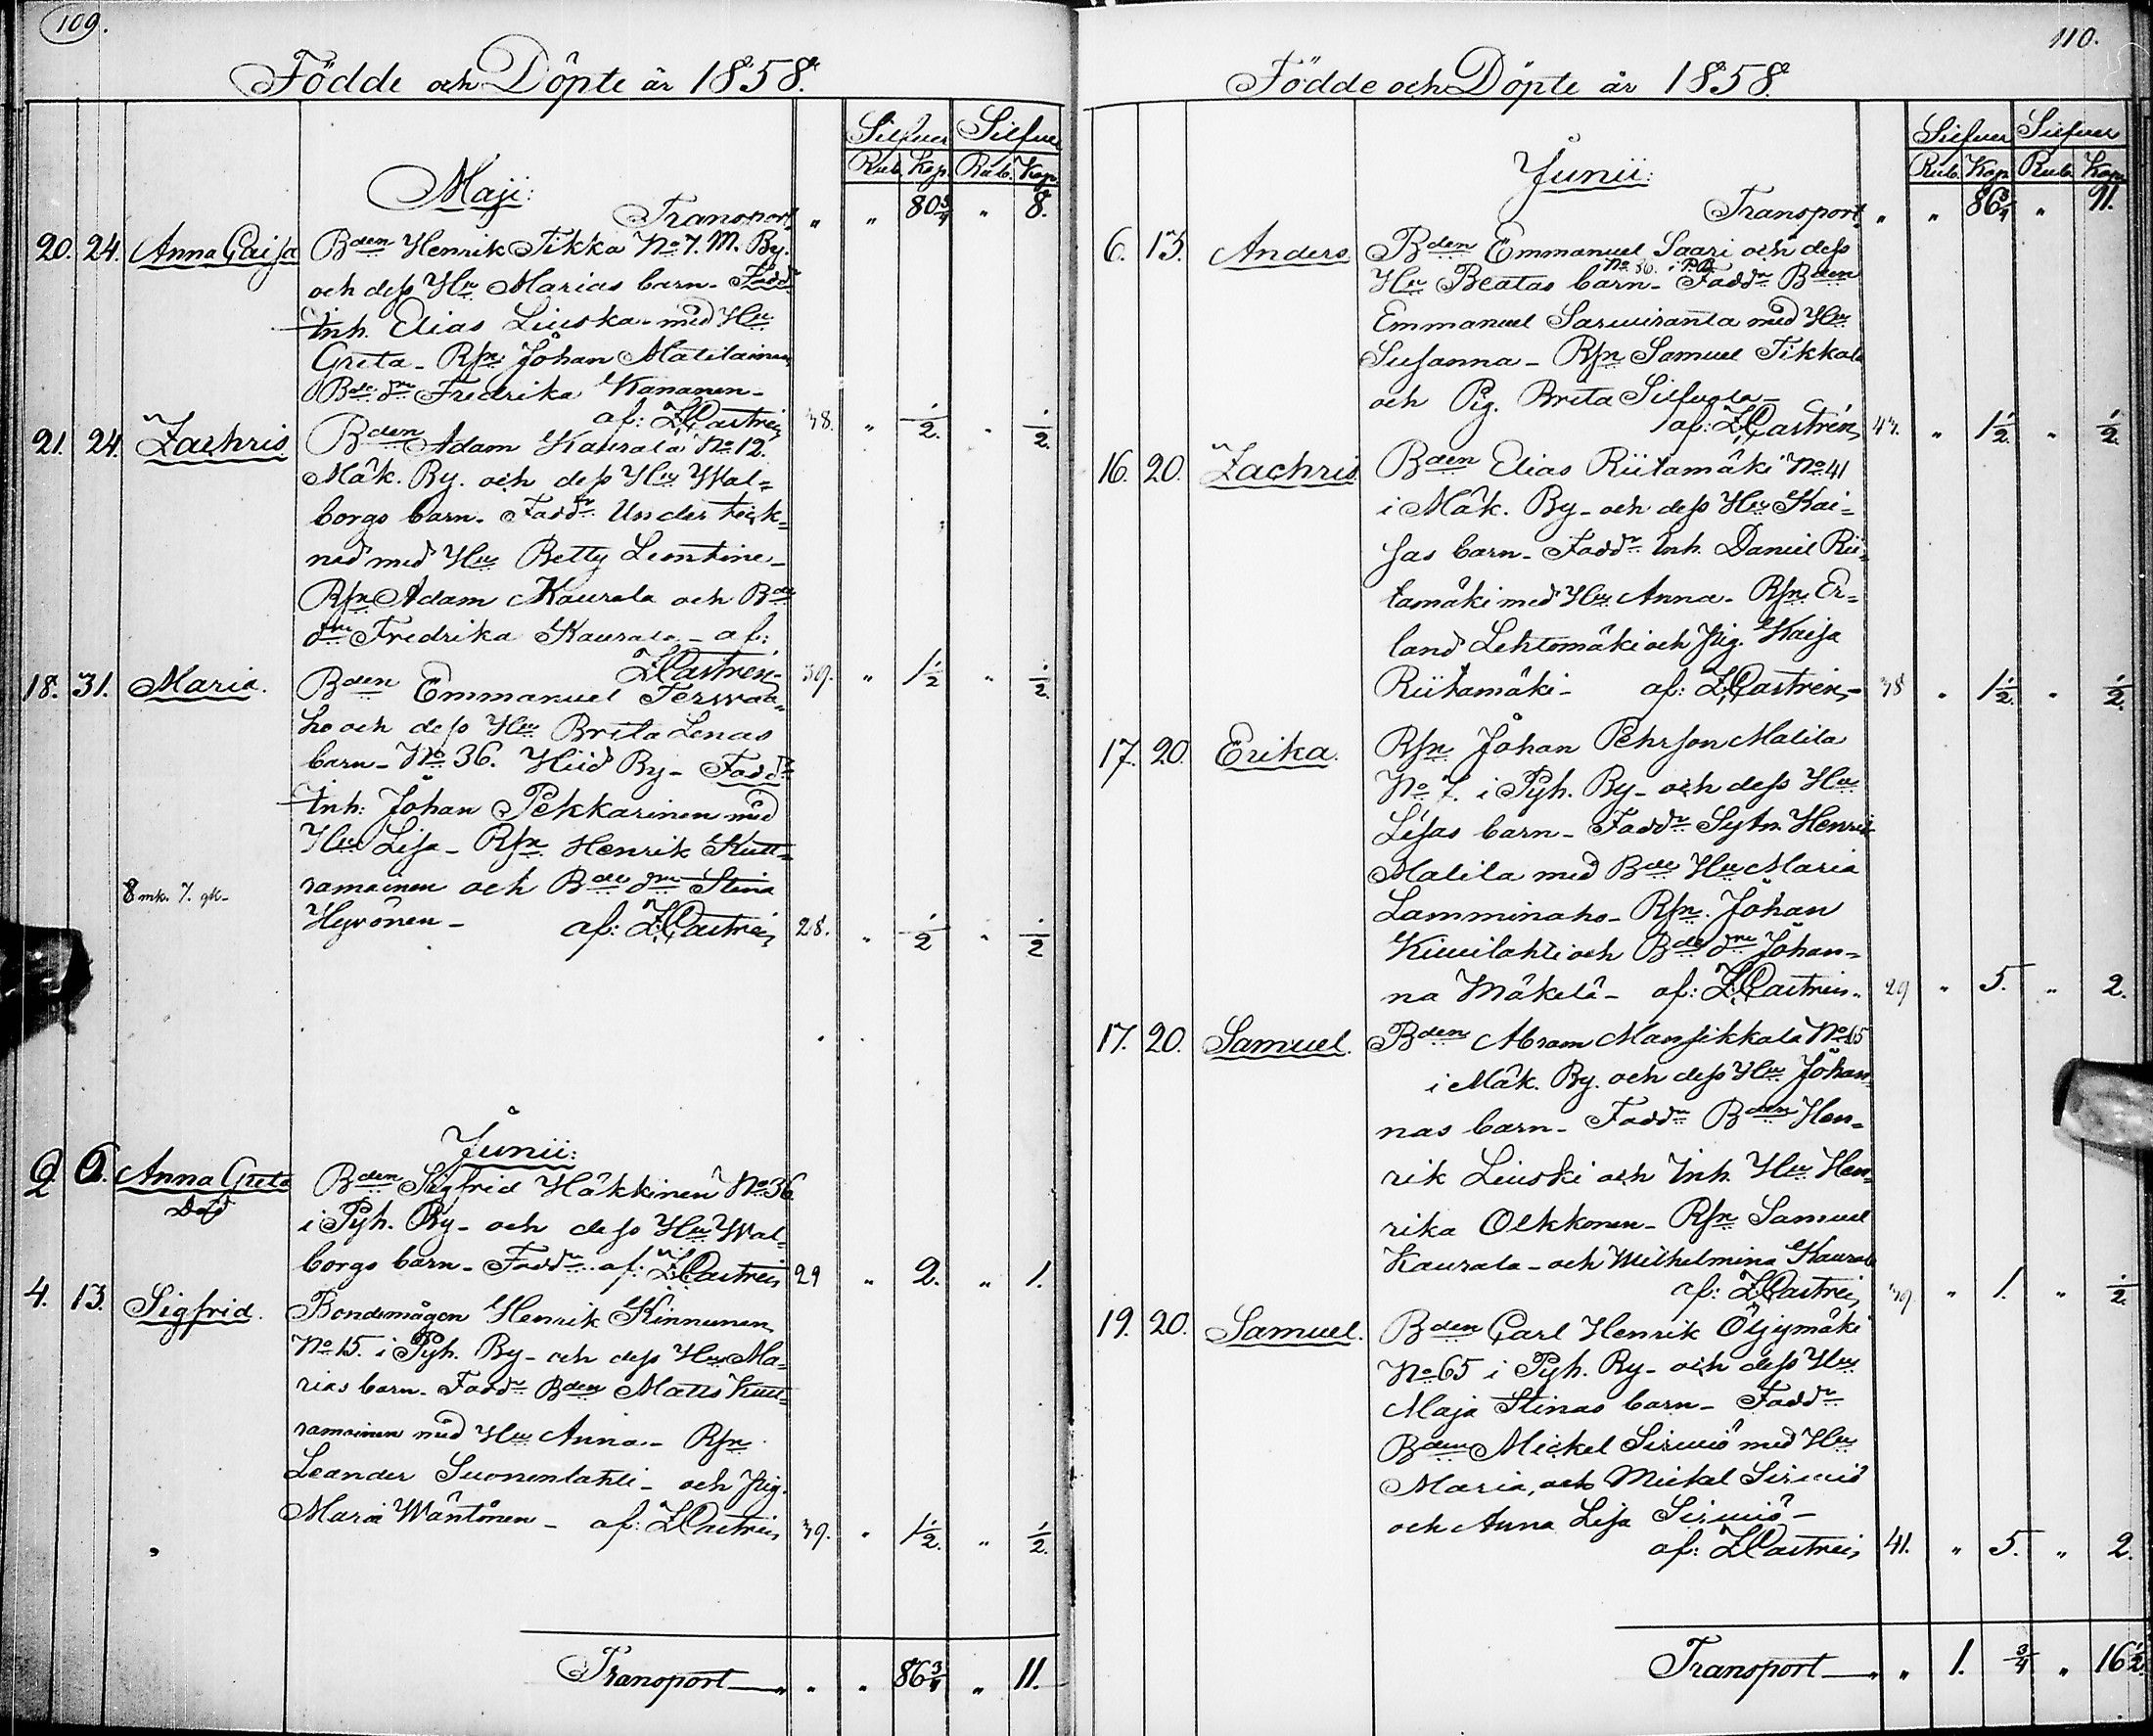 109.
Födde och Döpte år 1858.
Silfver Silfver
Rub. Kop. Rub. Kop.
Maji:
Transport „ „ 80 3/4 „ 8.
20. 24. Anna Caisa Bden Henrik Tikka No 7. M. By.
och dess Hu Marias barn - Faddr
Inh. Elias Liuska med Hu
Greta - Rfn Johan Matilainen
Bde dm Fredrika Kananen -
af: Z. Castrén 38. „ 1/2. „ 1/2
21. 24. Zachris Bden Adam Kaurala No 12.
Mäk. By. och dess Hu Wal=
borgs barn. Faddr Underteck=
nad med Hu Betty Leontine -
Rfn Adam Kaurala och Bde
dm Fredrika Kaurala - af:
Z. Castrén 39. „ 1 1/2 „ 1/2.
18. 31. Maria. Bden Emmanuel Terwa=
ho och dess Hu Brita Lenas
barn - No 36. Hiid By - Faddr
Inh: Johan Pekkarinen med
Hu Lisa - Rfn Henrik Kutt=
ramoinen och Bde dm Stina
8 mk. 7. gk-
Hyvönen - af: Z. Castrén 28. „ 1/2 „ 1/2
Junii:
2 6. Anna Greta Bden Sigfrid Häkkinen No 36
Död
i Pyh. By - och dess Hu Wal=
borgs barn - Faddr af: Z. Castrén 29 „ 2. „ 1.
4. 13. Sigfrid. Bondemågen Henrik Kinnunen
No 15. i Pyh. By - och dess Hu Ma=
rias barn - Faddr Bden Matts Kutt=
ramoinen med Hu Anna - Rfn
Leander Suonenlahti - och Pig.
Maria Wäntönen - af: Z. Castrén 39. „ 1 1/2. „ 1/2.
Transport „ „ 86 3/4 „ 11.
110.
Födde och Döpte år 1858.
Silfver Silfver
Rub. Kop. Rub. Kop.
Junii:
Transport „ „ 86 3/4 „ 11.
6. 13. Anders Bden Emmanuel Saari och dess
No 36. i P.B.
Hu Beatas barn - Faddr Bden
Emmanuel Sarwiranta med Hu
Susanna - Rfn Samuel Tikkala
och Pig. Brita Silfvola -
af: Z. Castrén 47. „ 1 1/2. „ 1/2.
16. 20. Zachris Bden Elias Riitamäki No 41
i Mäk. By - och dess Hu Kai=
sas barn - Faddr Inh. Daniel Rii=
tamäki med Hu Anna - Rfn Er=
land Lehtomäki och Pig. Kaisa
Riitamäki - af: Z. Castrén - 38 „ 1 1/2. „ 1/2.
17. 20. Erika. Rfn Johan Pehrson Malila
No 7. i Pyh. By - och dess Hu
Lisas barn - Faddr Sytn. Henrik
Malila med Bde Hu Maria
Lamminaho - Rfn. Johan
Kiwilahti och Bde dm Johan=
na Mäkelä - af: Z. Castrén 29 „ 5. „ 2.
17. 20. Samuel. Bden Abram Mansikkala No 15
i Mäk. By. och dess Hu Johan=
nas barn - Faddr Bden Hen=
rik Liuski och Inh. Hu Hen=
rika Olkkonen - Rfn Samuel
Kaurala - och Wilhelmina Kaurala
af: Z. Castrén 39 „ 1. „ 1/2
19. 20. Samuel. Bden Carl Henrik Öljymäki
No 65 i Pyh. By - och dess Hu
Maja Stinas barn - Faddr
Bden Mickel Sirwiö med Hu
Maria, och Mickel Sirwiö
och Anna Lisa Sirwiö -
af: Z. Castrén 41. „ 5. „ 2.
Transport „ „ 1. 3/4 „ 16 1/2